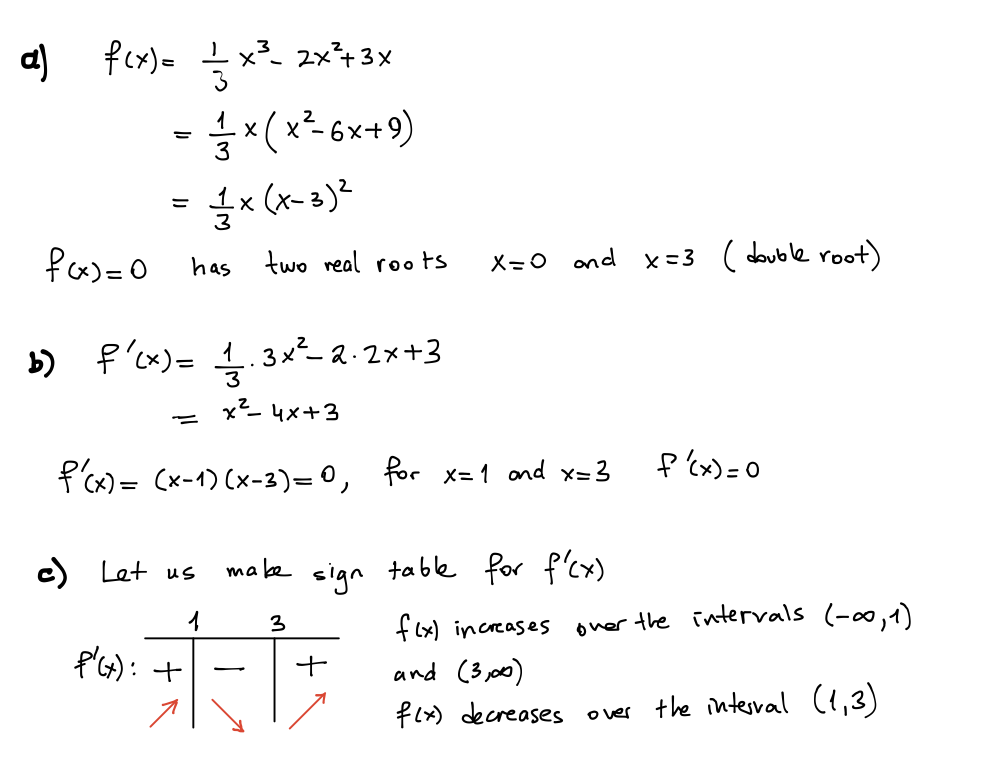 a) f(x) = 1/3 x³ - 2x² + 3x
= 1/3 x (x² - 6x + 9)
= 1/3 x (x - 3)²
f(x) = 0 has two real roots x = 0 and x = 3 (double root)
b) f'(x) = 1/3 · 3x² - 2 · 2x + 3
= x² - 4x + 3
f'(x) = (x-1)(x-3) = 0, for x = 1 and x = 3 f'(x) = 0
c) Let us make sign table for f'(x)
1 3
f'(x): + - +
f(x) increases over the intervals (-∞, 1)
and (3, ∞)
f(x) decreases over the interval (1, 3)